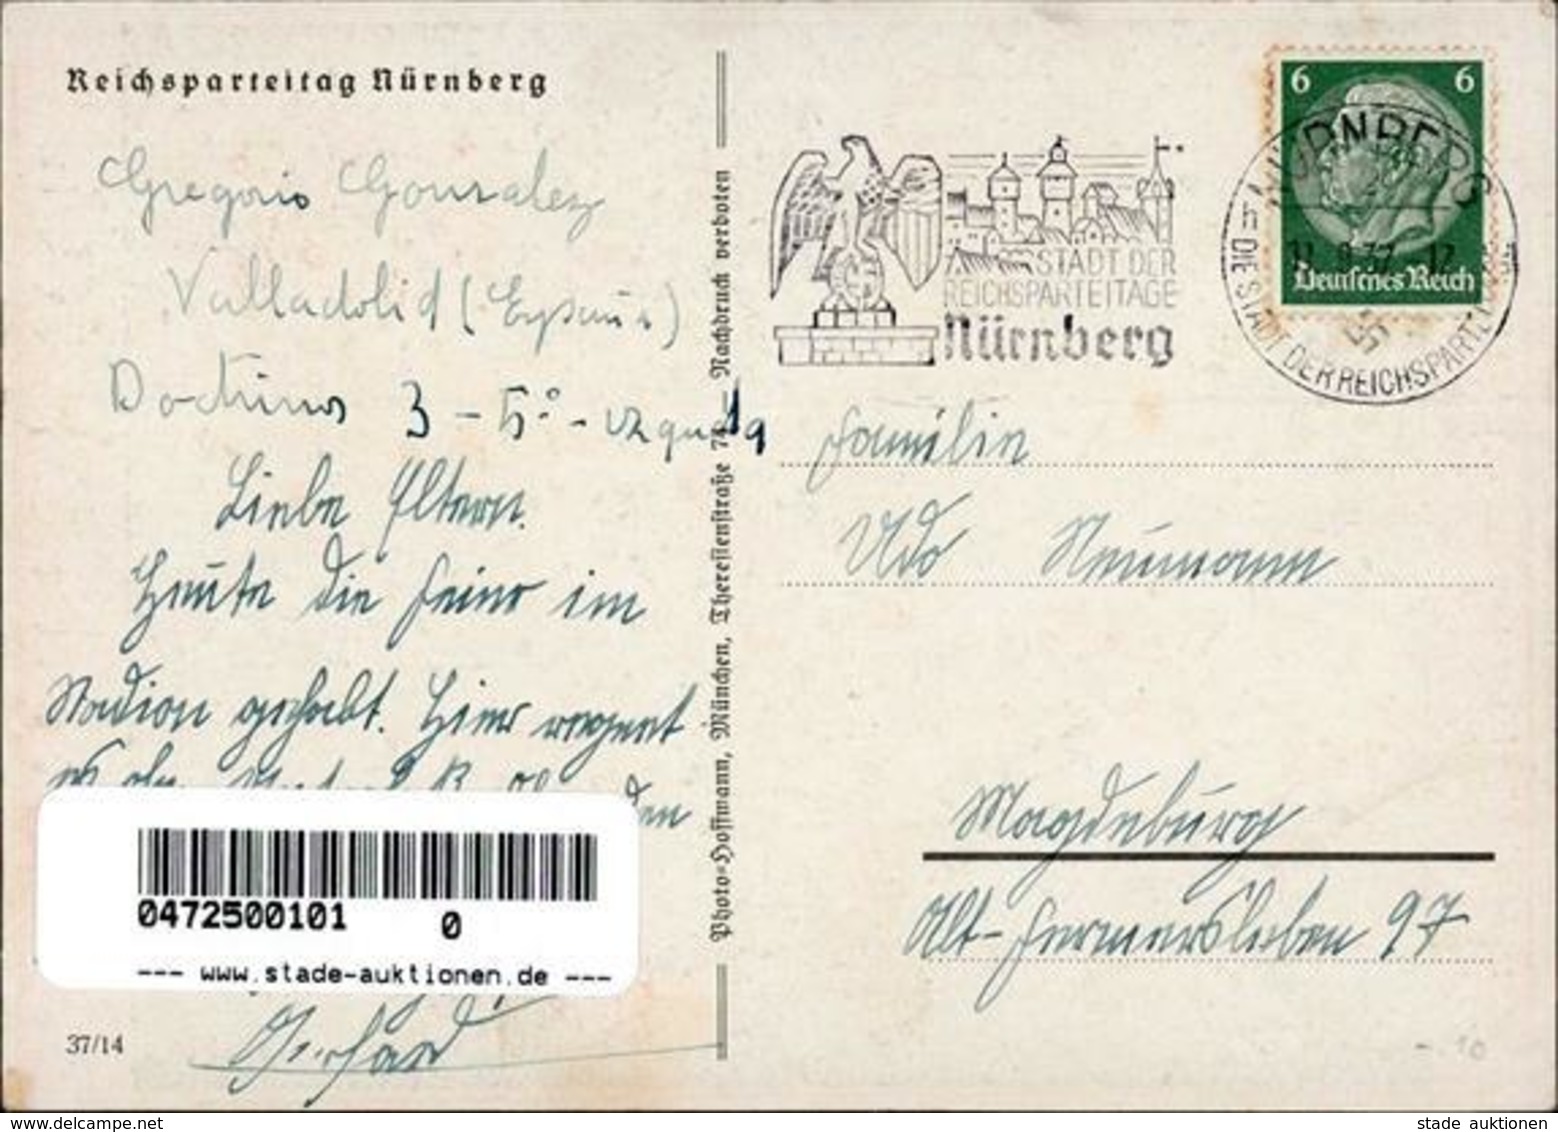 Reichsparteitag Nürnberg
Gregorio Gonzalez
Valladolid (España)
Doctrinos 3 - 5º - izqu
Liebe Eltern.
Heute die Feier im
Stadion gehabt. Hier regnet
es
den
Gerhard
37/14
0472500101 0
--- www.stade-auktionen.de ---
Photo-Hoffmann, München, Theresienstraße 74 — Nachdruck verboten
STADT DER
REICHSPARTEITAGE
Nürnberg
6 6
Deutsches Reich
NÜRNBERG
11.9.37. 12
DIE STADT DER REICHSPARTEITAGE
Familie
Udo Neumann
Magdeburg
Alt-Fermersleben 97
-.10
stade auktionen
stade auktionen